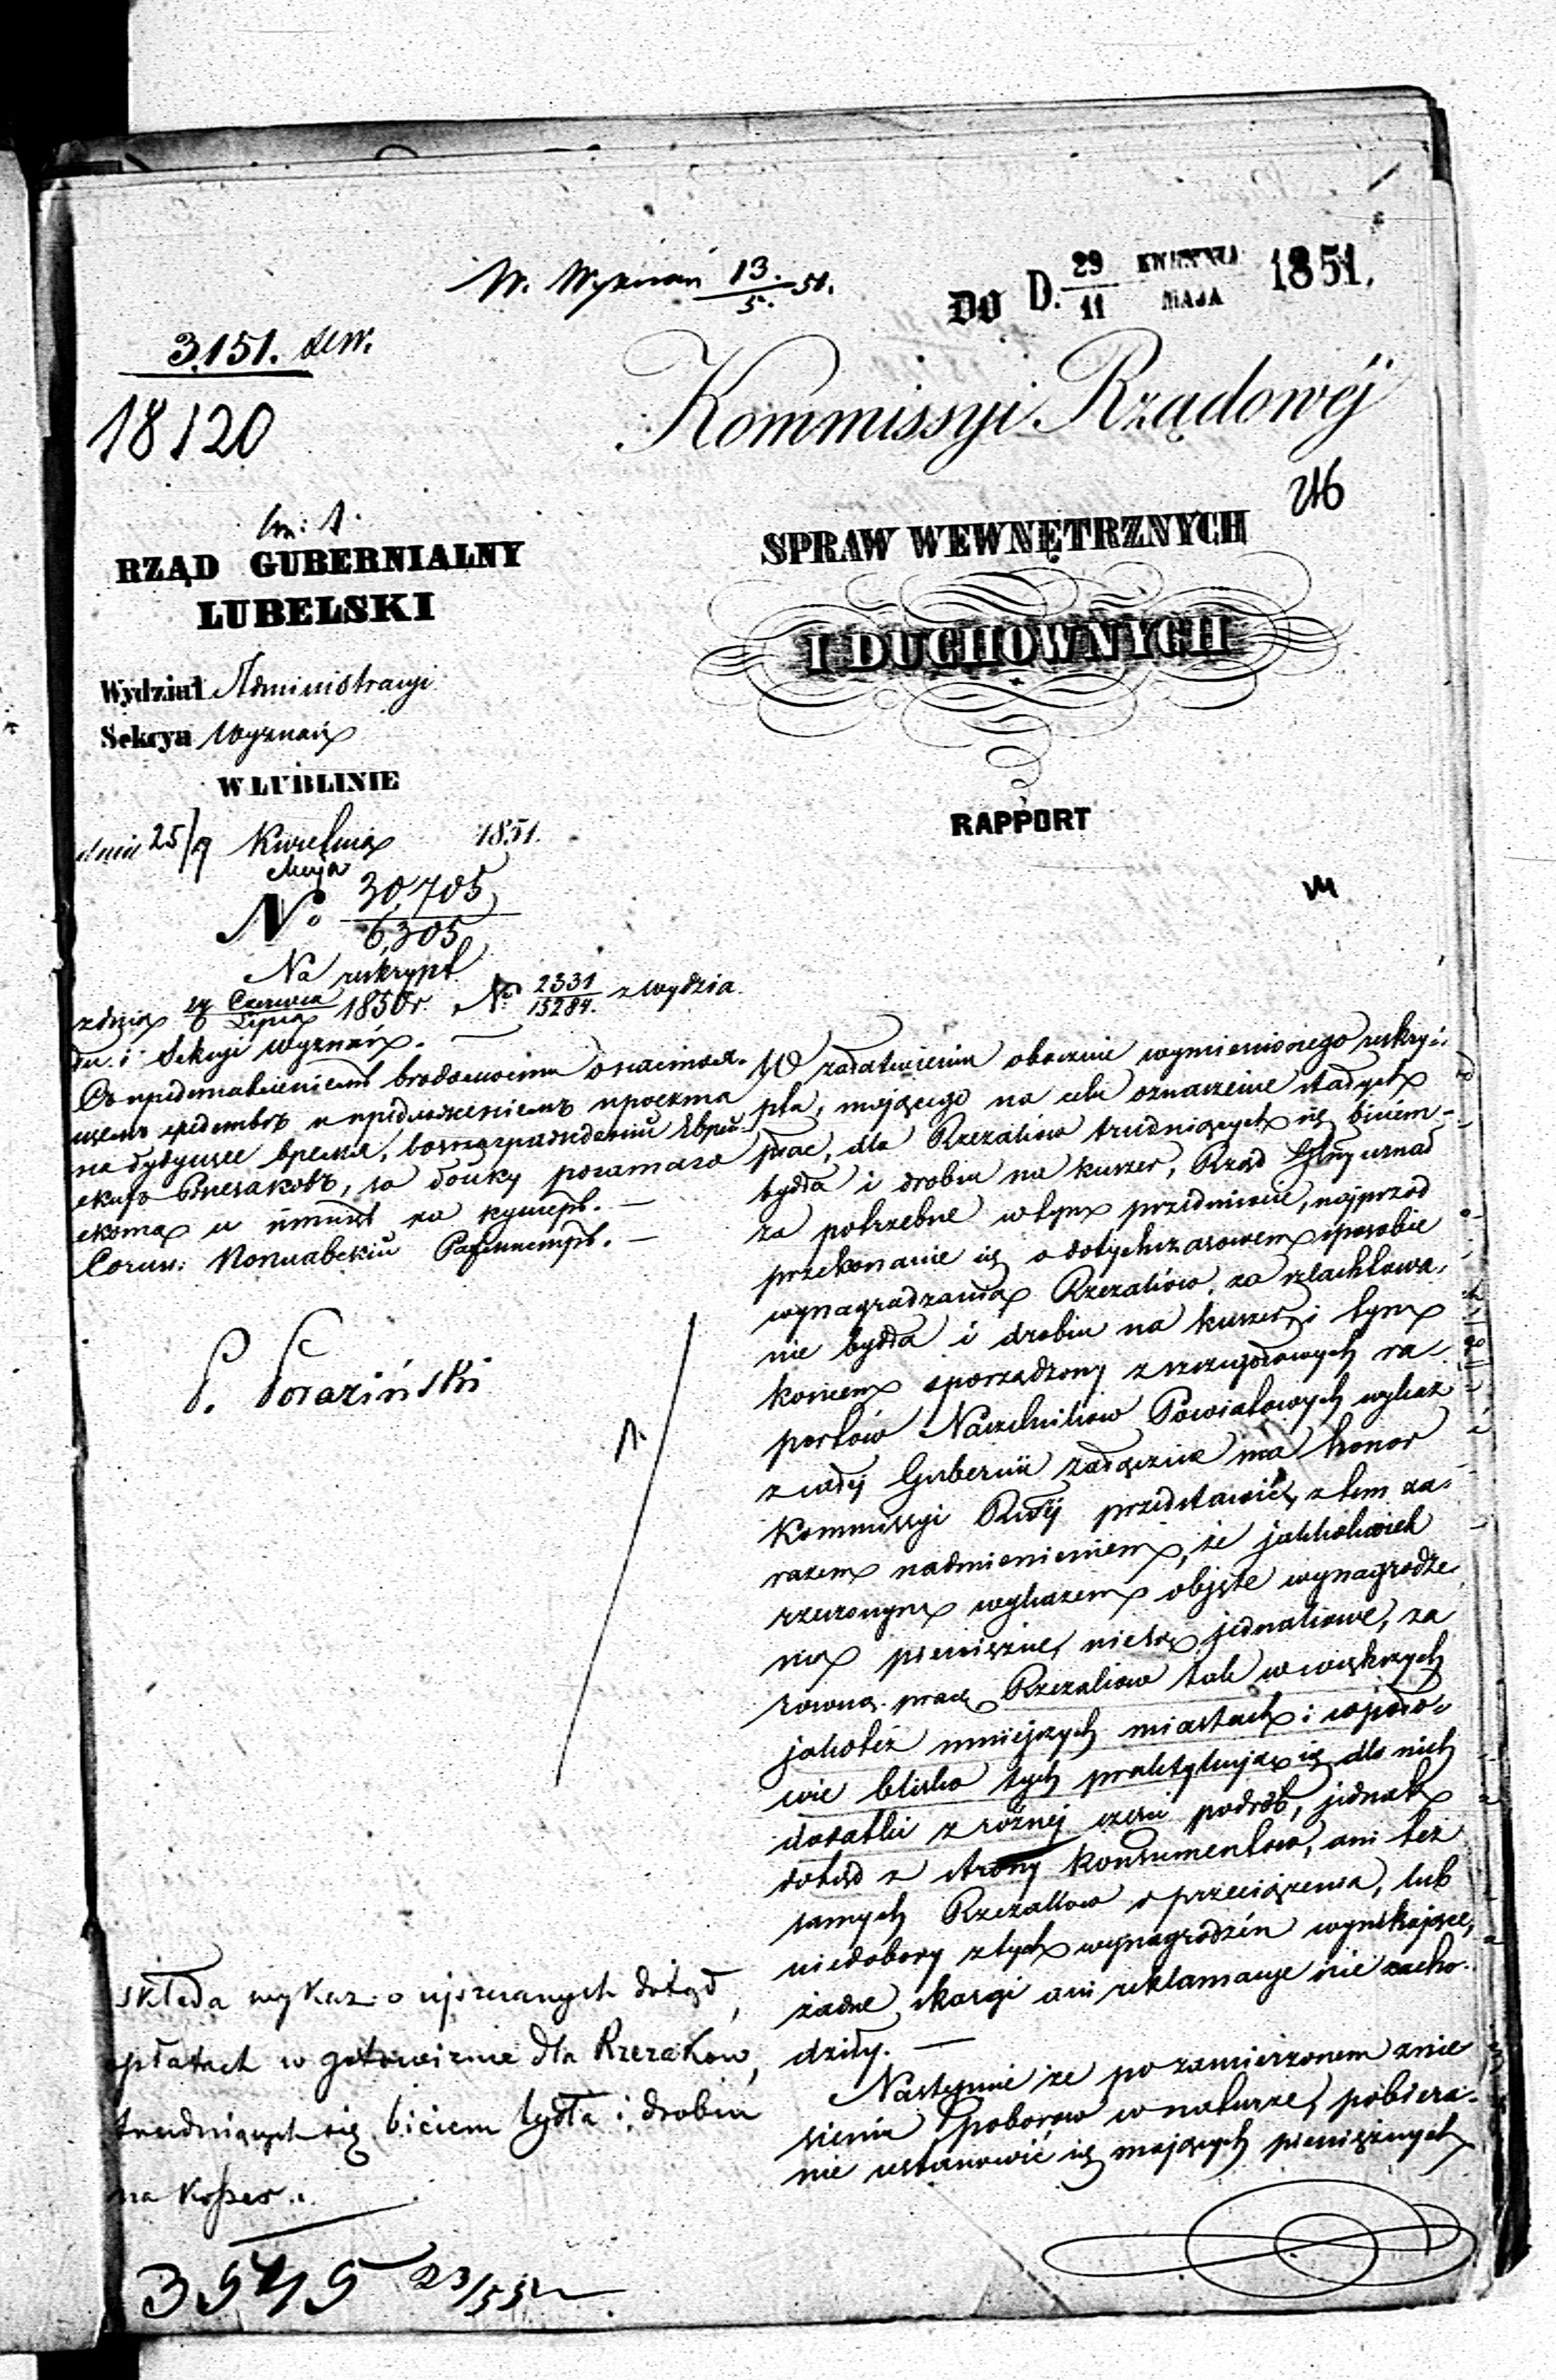 W. Wyznań 13/5. 51.
DO D. 29/11 KWIETNIA MAJA 1851.
3,151. Lew.
18120
Kommissyi Rządowéj
216
SPRAW WEWNĘTRZNYCH
I DUCHOWNYCH
RAPPORT
RZĄD GUBERNIALNY
LUBELSKI
Wydział Administracyi
Sekcya Wyznań
W LUBLINIE
dnia 25/7 Kwietnia Maja 1851.
No. 30,705/6,305
Na reskrypt
z dnia 24 Czerwca/6 Lipca 1850 r. No. 2331/15284. z wydzia
łu i Sekcyi wyznań.
P. Poraziński
W załatwieniu obocznie wymienionego reskry-
ptu, mającego na celu oznaczenie stałych
płac, dla Rzezaków trudniących się biciem
bydła i drobiu na kuszer, Rząd Glny uznał
za potrzebne w tym przedmiocie, najprzód
przekonanie się o dotychczasowem sposobie
wynagradzania Rzezaków, za szlachtowa-
nie bydła i drobiu na kuszer, i tym
końcem sporządzony z szczegółowych ra-
portów Naczelników Powiatowych wykaz
z całej Gubernii załącznie ma honor
Kommissyi Rwéj przedstawić, z tem za-
razem nadmienieniem, że jakkolwiek
rzeczonym wykazem objęte wynagrodze-
nia pieniężne, nie są jednakowe, za
równą pracę Rzezaków tak w większych
jakoteż mniejszych miastach i w
blisko tych praktykują się dla nich
dodatki z różnej części podrób, jednak
dotąd z strony konsumentów, ani też
samych Rzezaków o przeciążenia, lub
niedobory z tych wynagrodzeń wynikające,
żadne skargi ani reklamacye nie zacho-
dziły. —
Następnie że po zamierzonem znie-
sieniu poborów w naturze, pobiera-
nie ustanowić się mających pieniężnych
składa wykaz o uiszczanych dotąd
opłatach w gotowiznie dla Rzezaków,
trudniących się biciem bydła i drobiu
na koszer.
3545 23/5 51